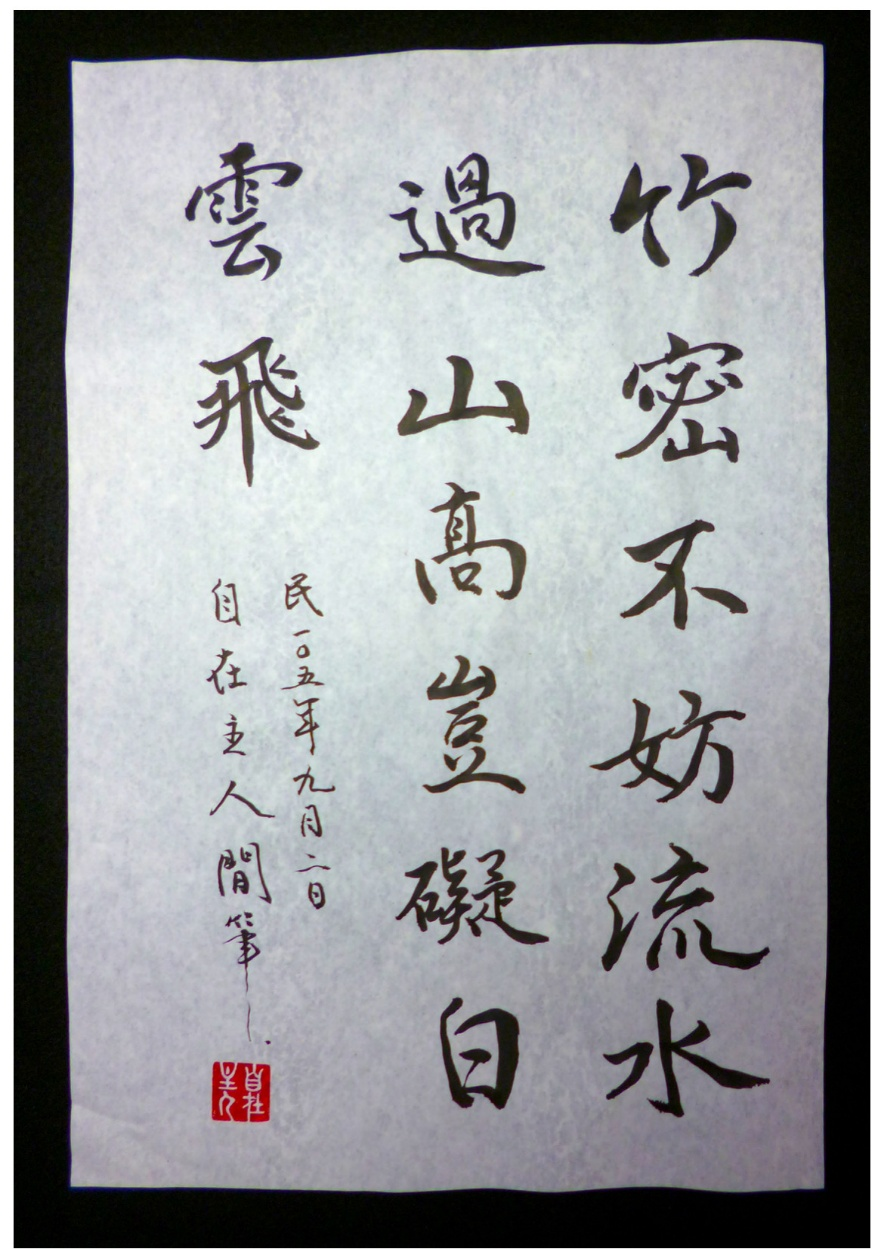 竹密不妨流水
過山高豈礙白
雲飛
民一〇五年九月二日
自在主人閒筆
自在主人